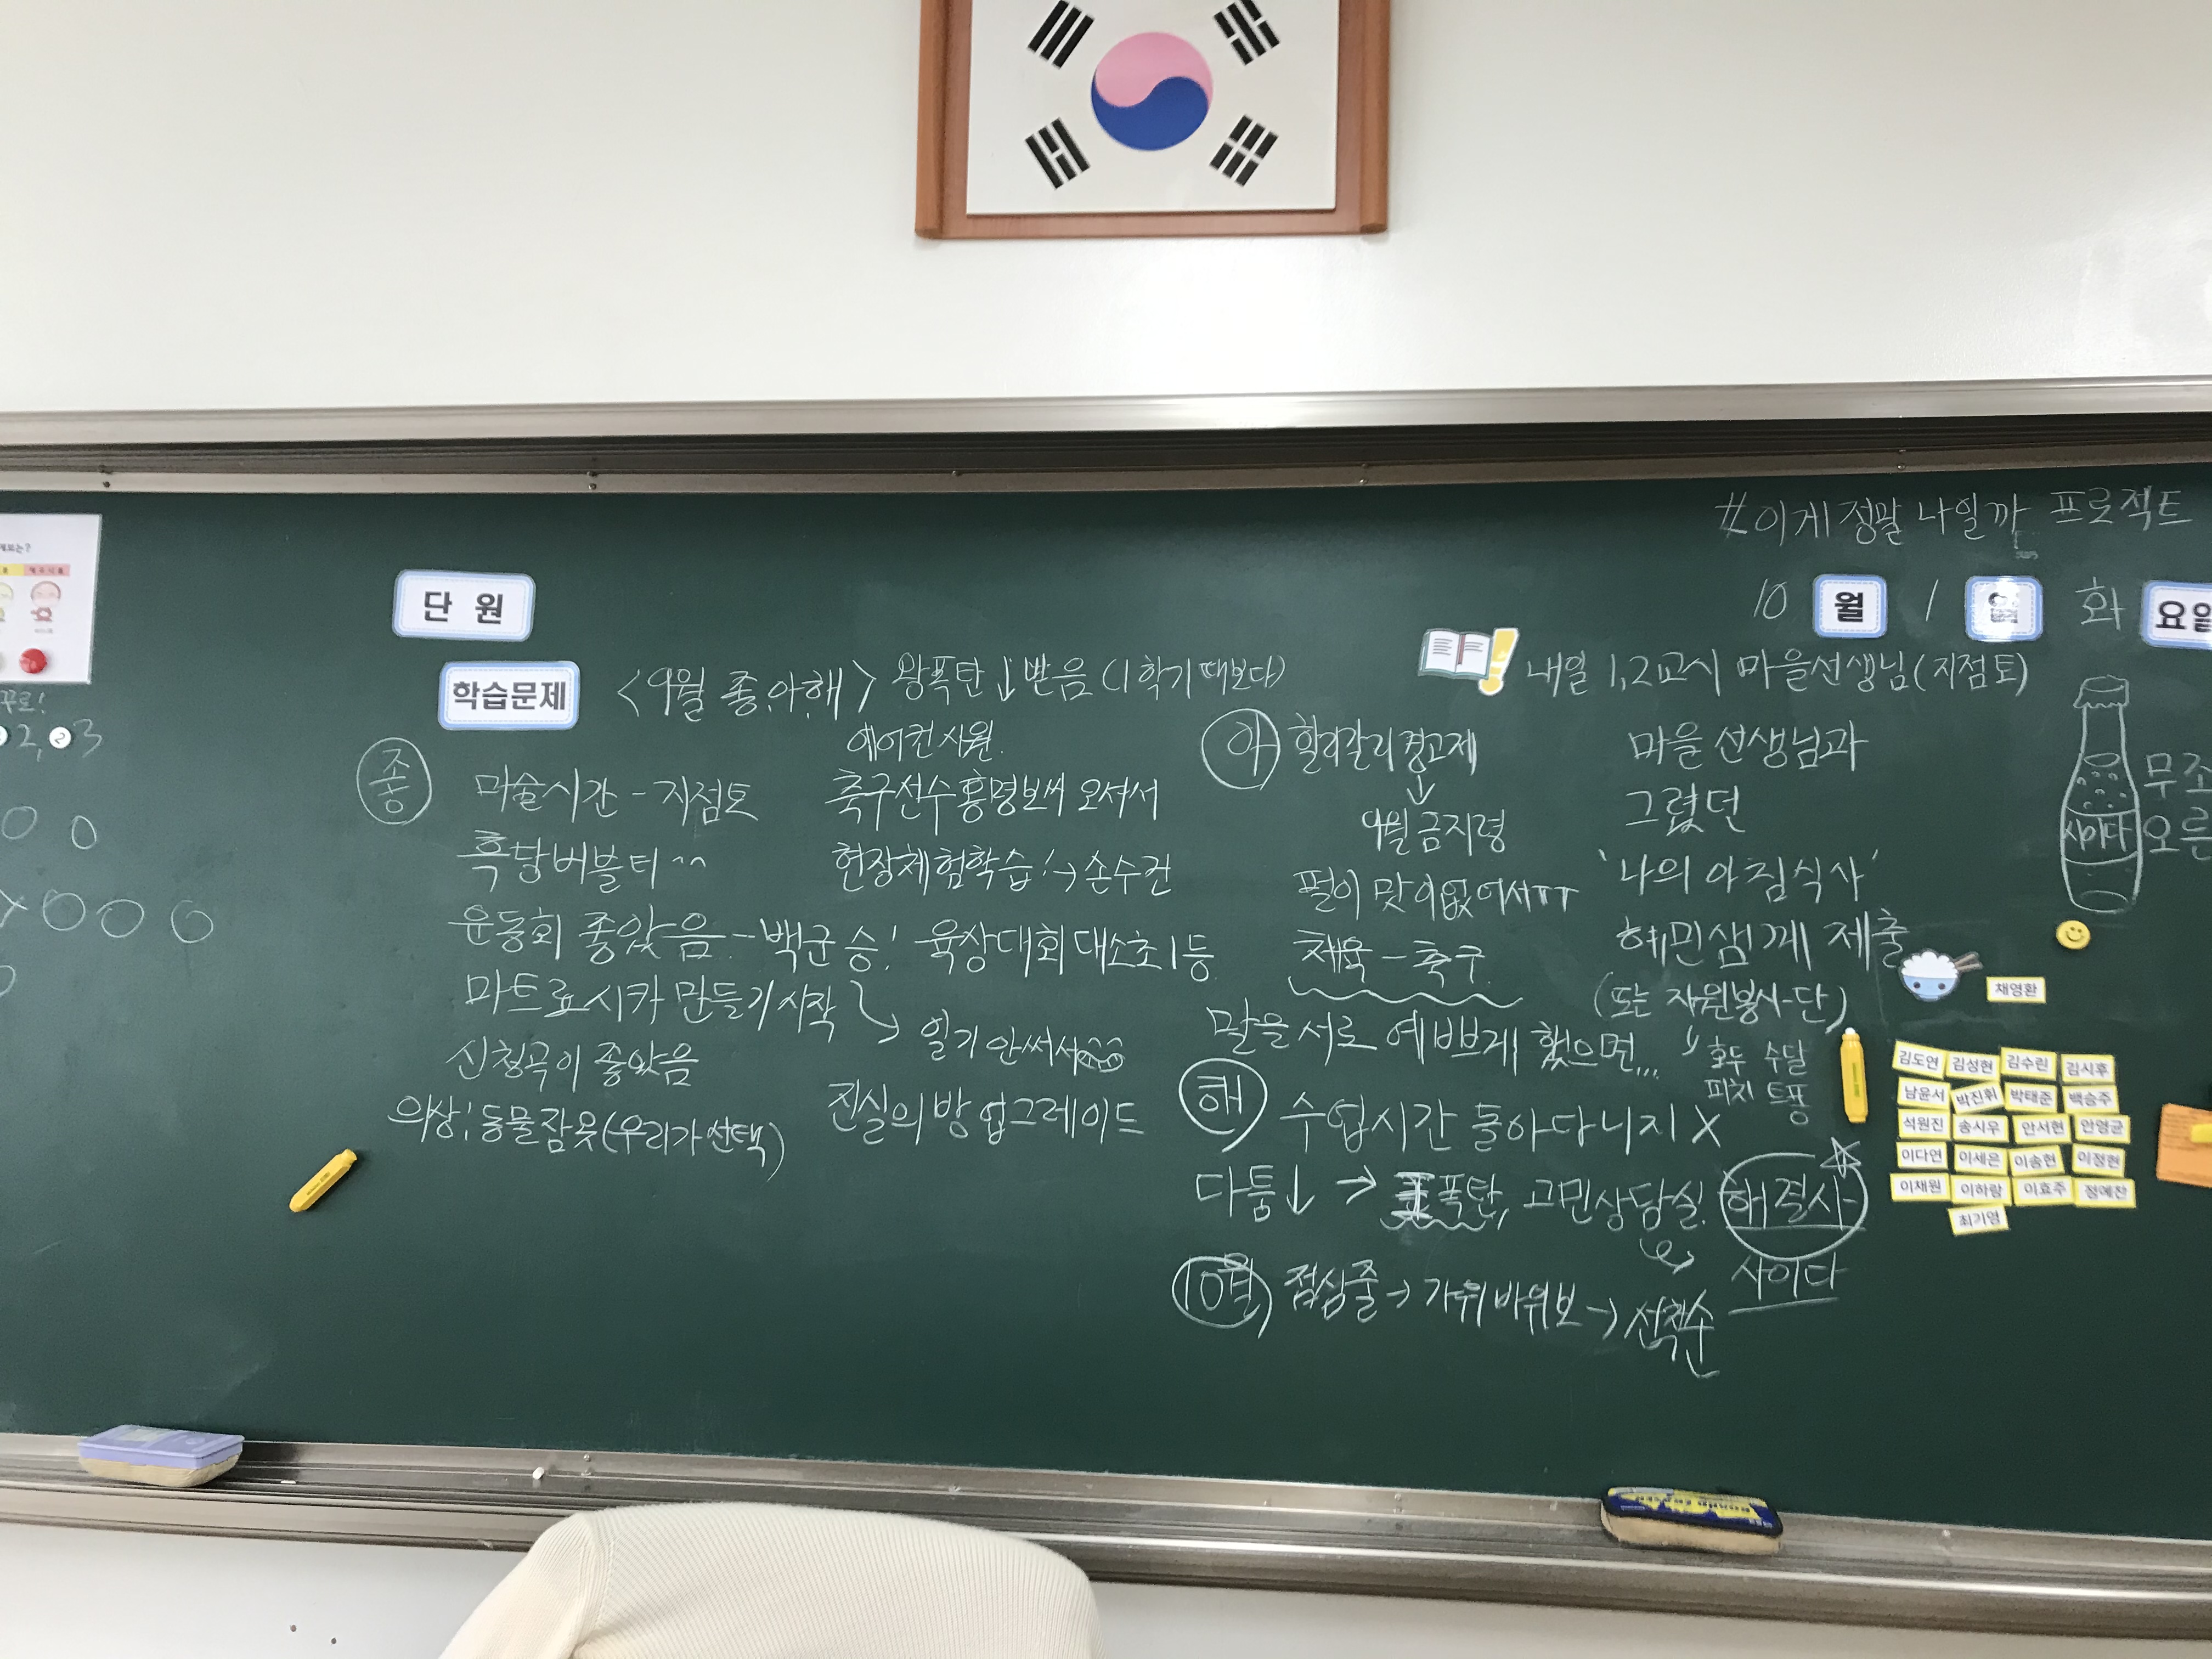 #이게 정말 나일까 프로젝트
10 월 1 일 화 요일
단 원
학습문제
<9월 좋.아.해> 왕폭탄↓받음 (1학기 때보다)
에어컨 시원.
좋
미술시간 - 지점토
흑당버블티^^
운동회 좋았음 - 백군 승!
마트료시카 만들기 시작
신청곡이 좋았음
의상: 동물잠옷(우리가 선택)
축구선수 홍명보씨 오셔서
현장체험학습! → 손수건
육상대회 대소초 1등
일기 안써서
진실의 방 업그레이드
아
할리갈리 경고제
↓
9월 금지령
펄이 맛이없어서ㅠㅠ
체육 - 축구.
말을 서로 예쁘게 했으면...
해
수업시간 돌아다니지 X
다툼↓ → 폭탄, 고민상담실. 해결사
사이다
10월 점심줄 → 가위바위보 → 선착순
내일 1,2교시 마을선생님(지점토)
마을 선생님과
그렸던
'나의 아침식사'
혜민샘께 제출
(또는 자원봉사단)
호두 수달
피치 트퐁
사이다
무조
오른
채영환
김도연 김성현 김수린 김시후
남윤서 박진휘 박태준 백승주
석원진 송시우 안서현 안영균
이다연 이세은 이송현 이정현
이채원 이하랑 이효주 정예찬
최기영
꾸로!
2, 2 3